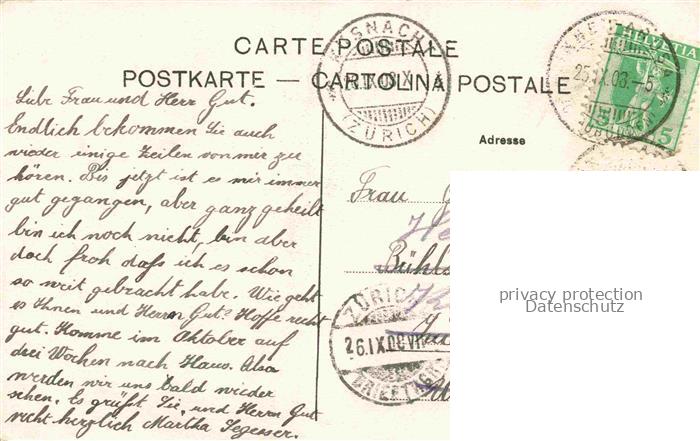 CARTE POSTALE
POSTKARTE — CARTOLINA POSTALE
Adresse
Liebe Frau und Herr Gut.
Endlich bekommen Sie auch
wieder einige Zeilen von mir zu
hören. Bis jetzt ist es mir immer
gut gegangen, aber ganz geheilt
bin ich noch nicht, bin aber
doch froh dass ich es schon
so weit gebracht habe. Wie geht
es Ihnen und Herrn Gut? Hoffe recht
gut. Komme im Oktober auf
drei Wochen nach Haus. Also
werden wir uns bald wieder
sehen. Es grüsst Sie, und Herrn Gut
recht herzlich Martha Segesser.
Frau
Bühls
(ZÜRICH)
HELVETIA
5 5
ZÜRICH
26.IX.08.VII
privacy protection
Datenschutz